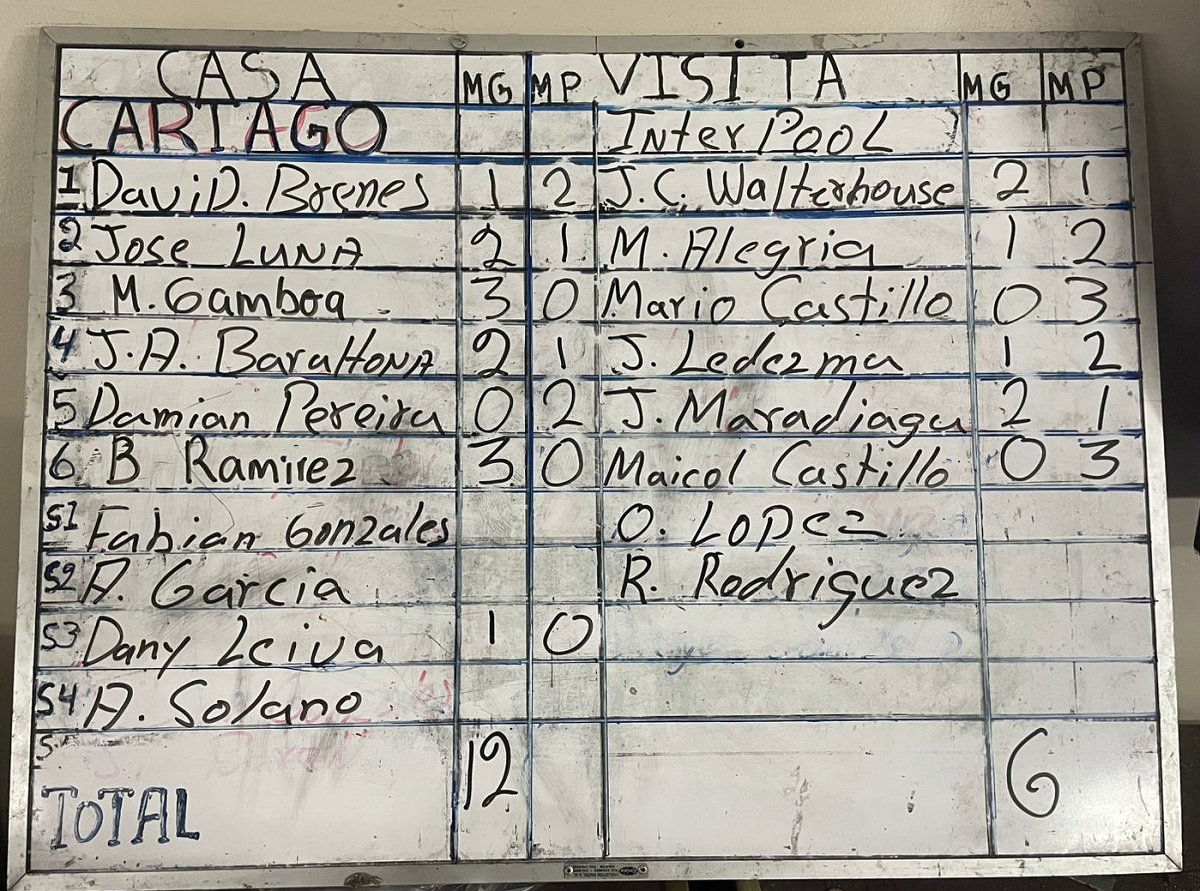 CASA MG MP VISITA MG MP
CARTAGO InterPOOL
1 DaviD. Brenes 1 2 J.C. Walterhouse 2 1
2 Jose LUNA 2 1 M. Alegria 1 2
3 M. Gamboa 3 0 Mario Castillo 0 3
4 J.A. BaraHONA 2 1 J. Ledezma 1 2
5 Damian Pereira 0 2 J. Maradiaga 2 1
6 B Ramirez 3 0 Maicol Castillo 0 3
S1 Fabian Gonzales O. Lopez
S2 A. Garcia R. Rodriguez
S3 Dany Leiva 1 0
S4 A. Solano
S
TOTAL 12 6